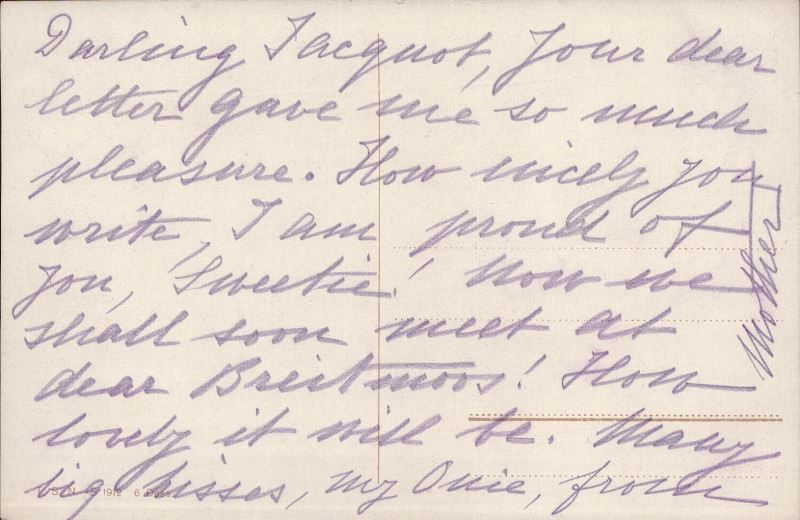 Darling Jacquot, Your dear
letter gave me so much
pleasure. How nicely you
write, I am proud of
you, Sweetie! Now we
shall soon meet at
dear Breitmoos! How
lovely it will be. Many
big kisses, my Onie, from
Mother
1912 6